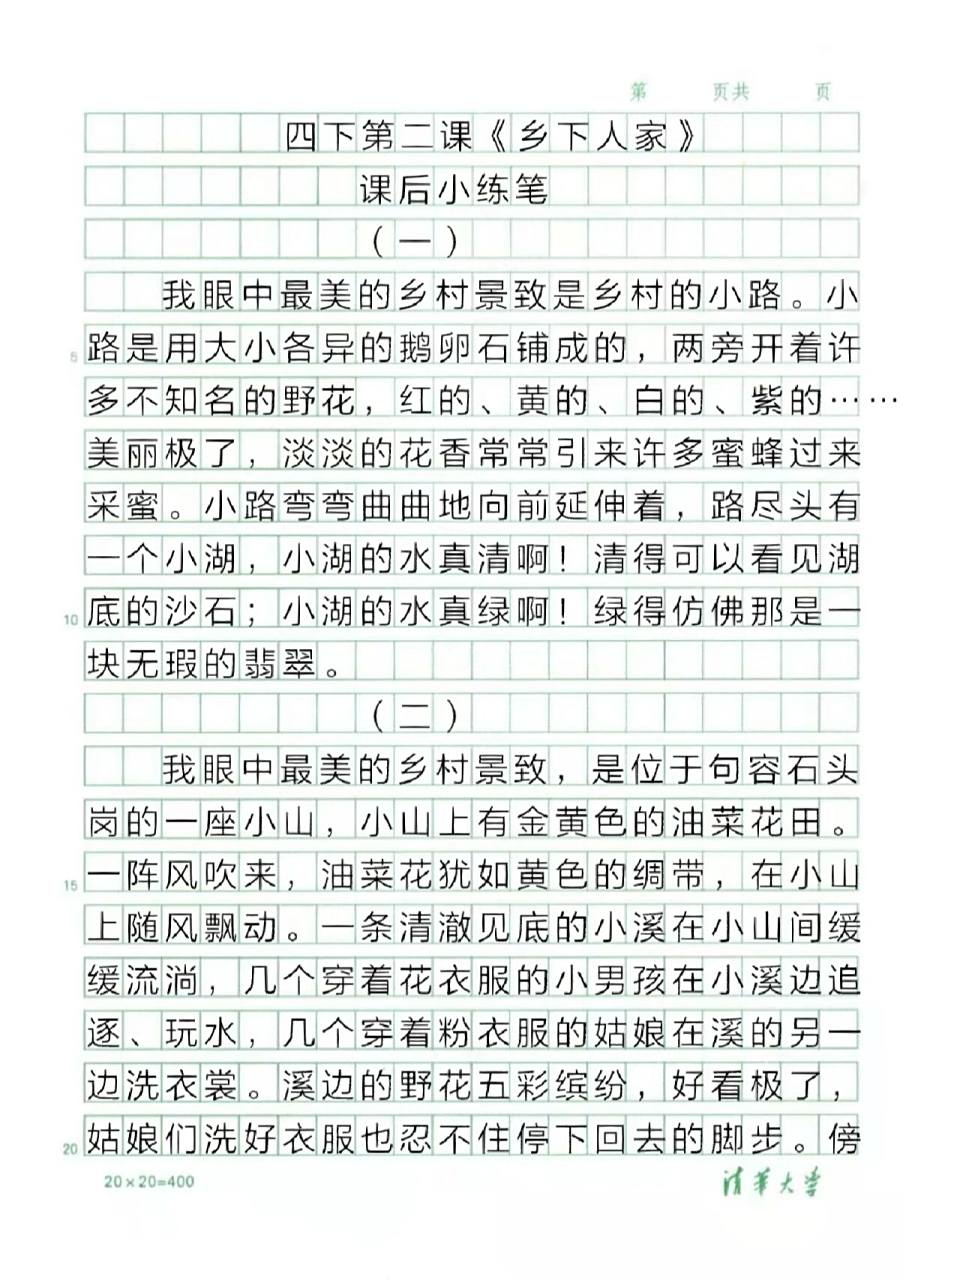 第 页共 页
四下第二课《乡下人家》
课后小练笔
（一）
我眼中最美的乡村景致是乡村的小路。小
5 路是用大小各异的鹅卵石铺成的，两旁开着许
多不知名的野花，红的、黄的、白的、紫的……
美丽极了，淡淡的花香常常引来许多蜜蜂过来
采蜜。小路弯弯曲曲地向前延伸着，路尽头有
一个小湖，小湖的水真清啊！清得可以看见湖
10 底的沙石；小湖的水真绿啊！绿得仿佛那是一
块无瑕的翡翠。
（二）
我眼中最美的乡村景致，是位于句容石头
岗的一座小山，小山上有金黄色的油菜花田。
15 一阵风吹来，油菜花犹如黄色的绸带，在小山
上随风飘动。一条清澈见底的小溪在小山间缓
缓流淌，几个穿着花衣服的小男孩在小溪边追
逐、玩水，几个穿着粉衣服的姑娘在溪的另一
边洗衣裳。溪边的野花五彩缤纷，好看极了，
20 姑娘们洗好衣服也忍不住停下回去的脚步。傍
20×20=400 清华大学